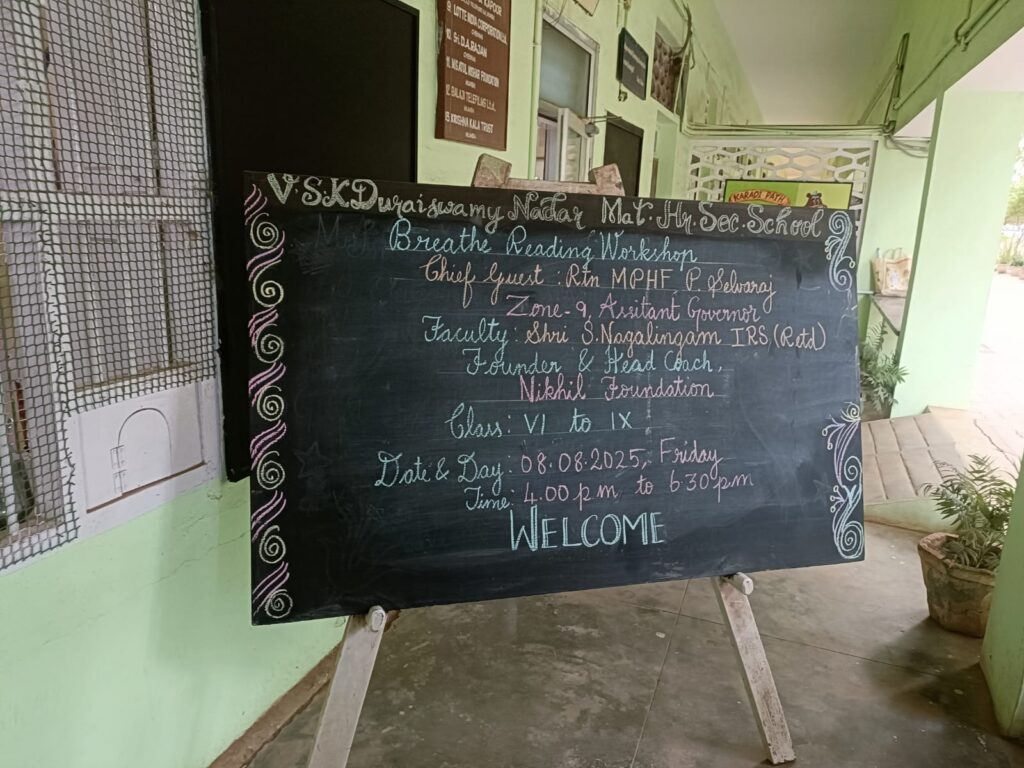 9. LOTTE INDIA CORPORATION Ltd.
CHENNAI
10. Sri. D.A. RAJAN
CHENNAI
12. BALAJI TELEFILMS Ltd.,
13. KRISHNA KALA TRUST
KARADI PATH
V.S.K.Duraiswamy Nadar Mat. Hr. Sec. School
Breathe Reading Workshop
Chief Guest : Rtn MPHF P. Selvaraj
Zone-9, Assitant Governor
Faculty: Shri S.Nagalingam IRS (Retd)
Founder & Head Coach,
Nikhil Foundation
Class: VI to IX
Date & Day: 08.08.2025, Friday
Time: 4.00 pm to 6.30 pm
WELCOME